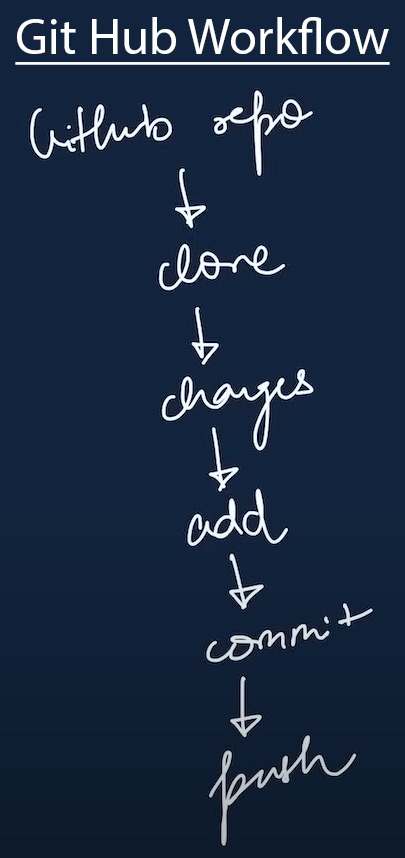 Git Hub Workflow
GitHub repo
clone
changes
add
commit
push